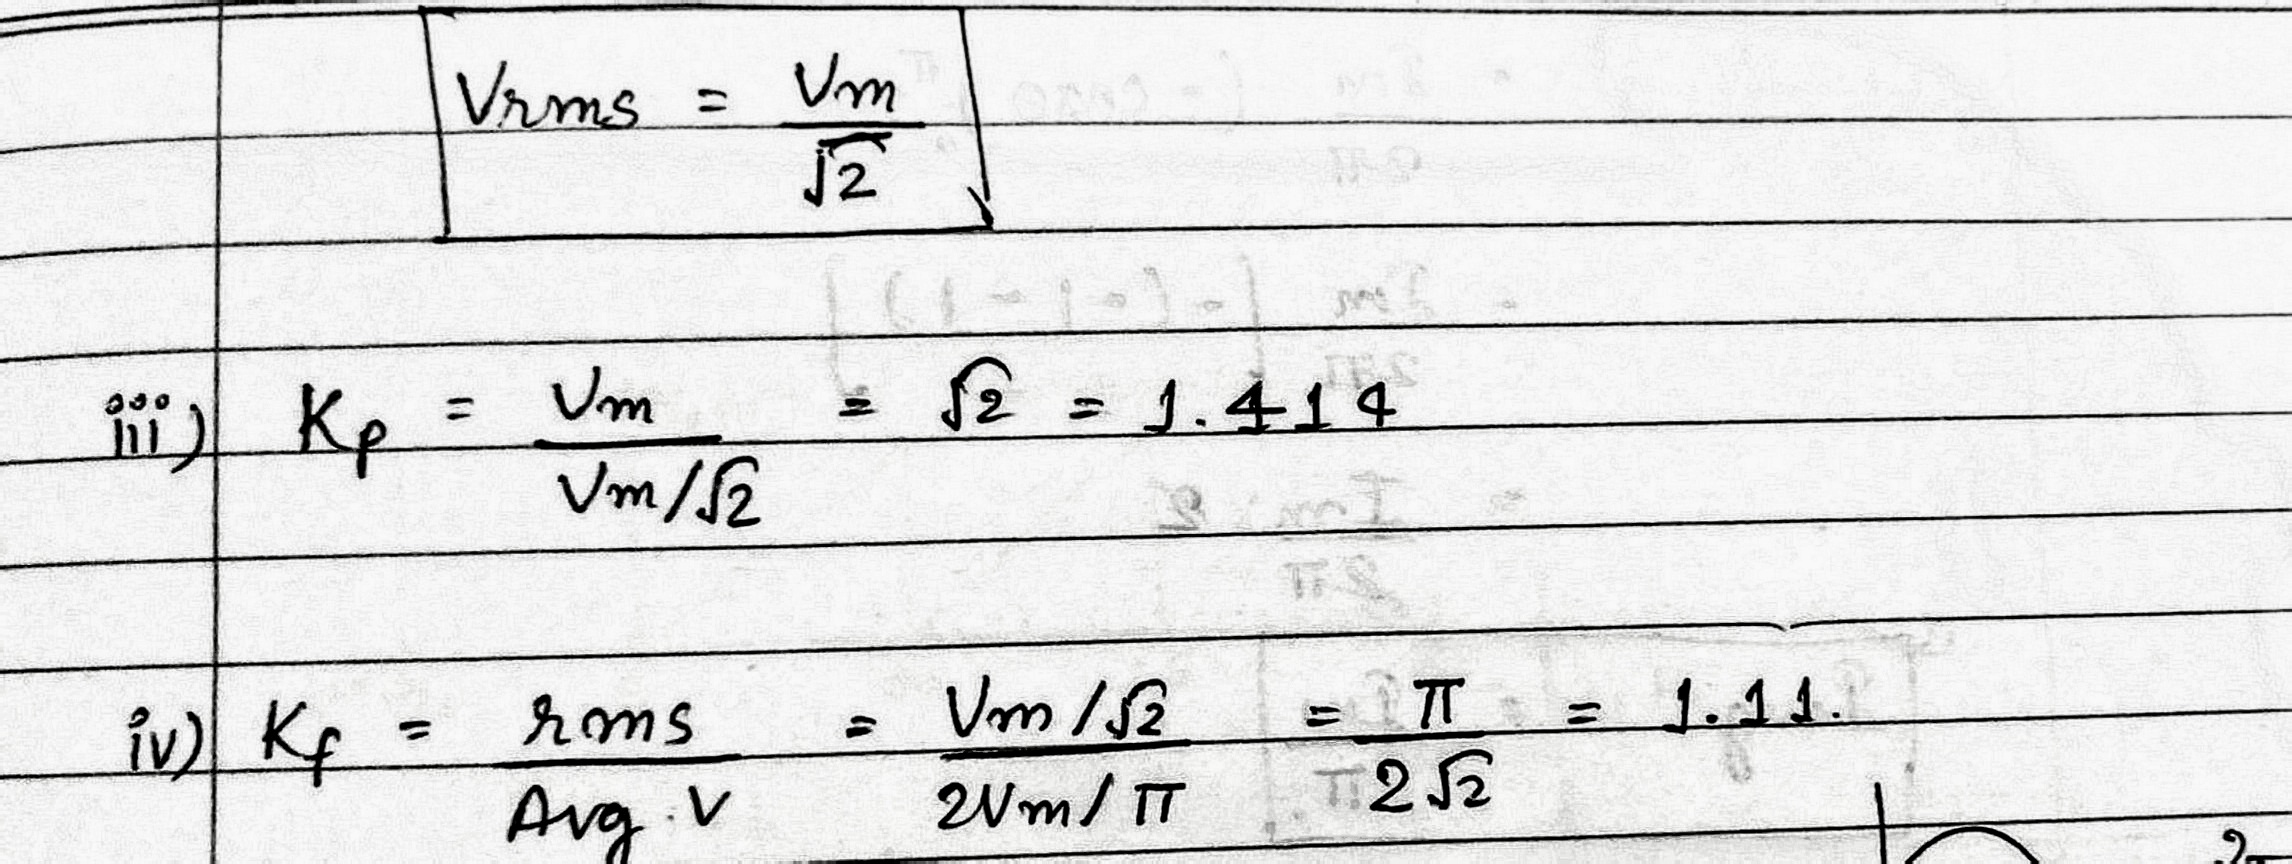 Vrms = Vm / √2
iii) Kp = Vm / Vm/√2 = √2 = 1.414
iv) Kf = rms / Avg. V = Vm/√2 / 2Vm/π = π / 2√2 = 1.11.